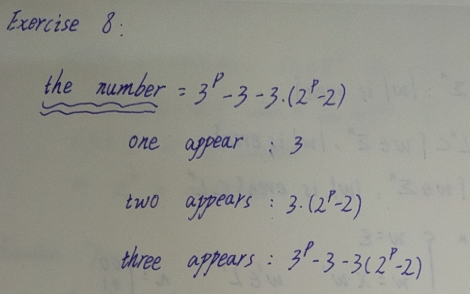 Exercise 8:
the number = 3^p - 3 - 3·(2^p-2)
one appear : 3
two appears : 3·(2^p-2)
three appears : 3^p - 3 - 3(2^p-2)